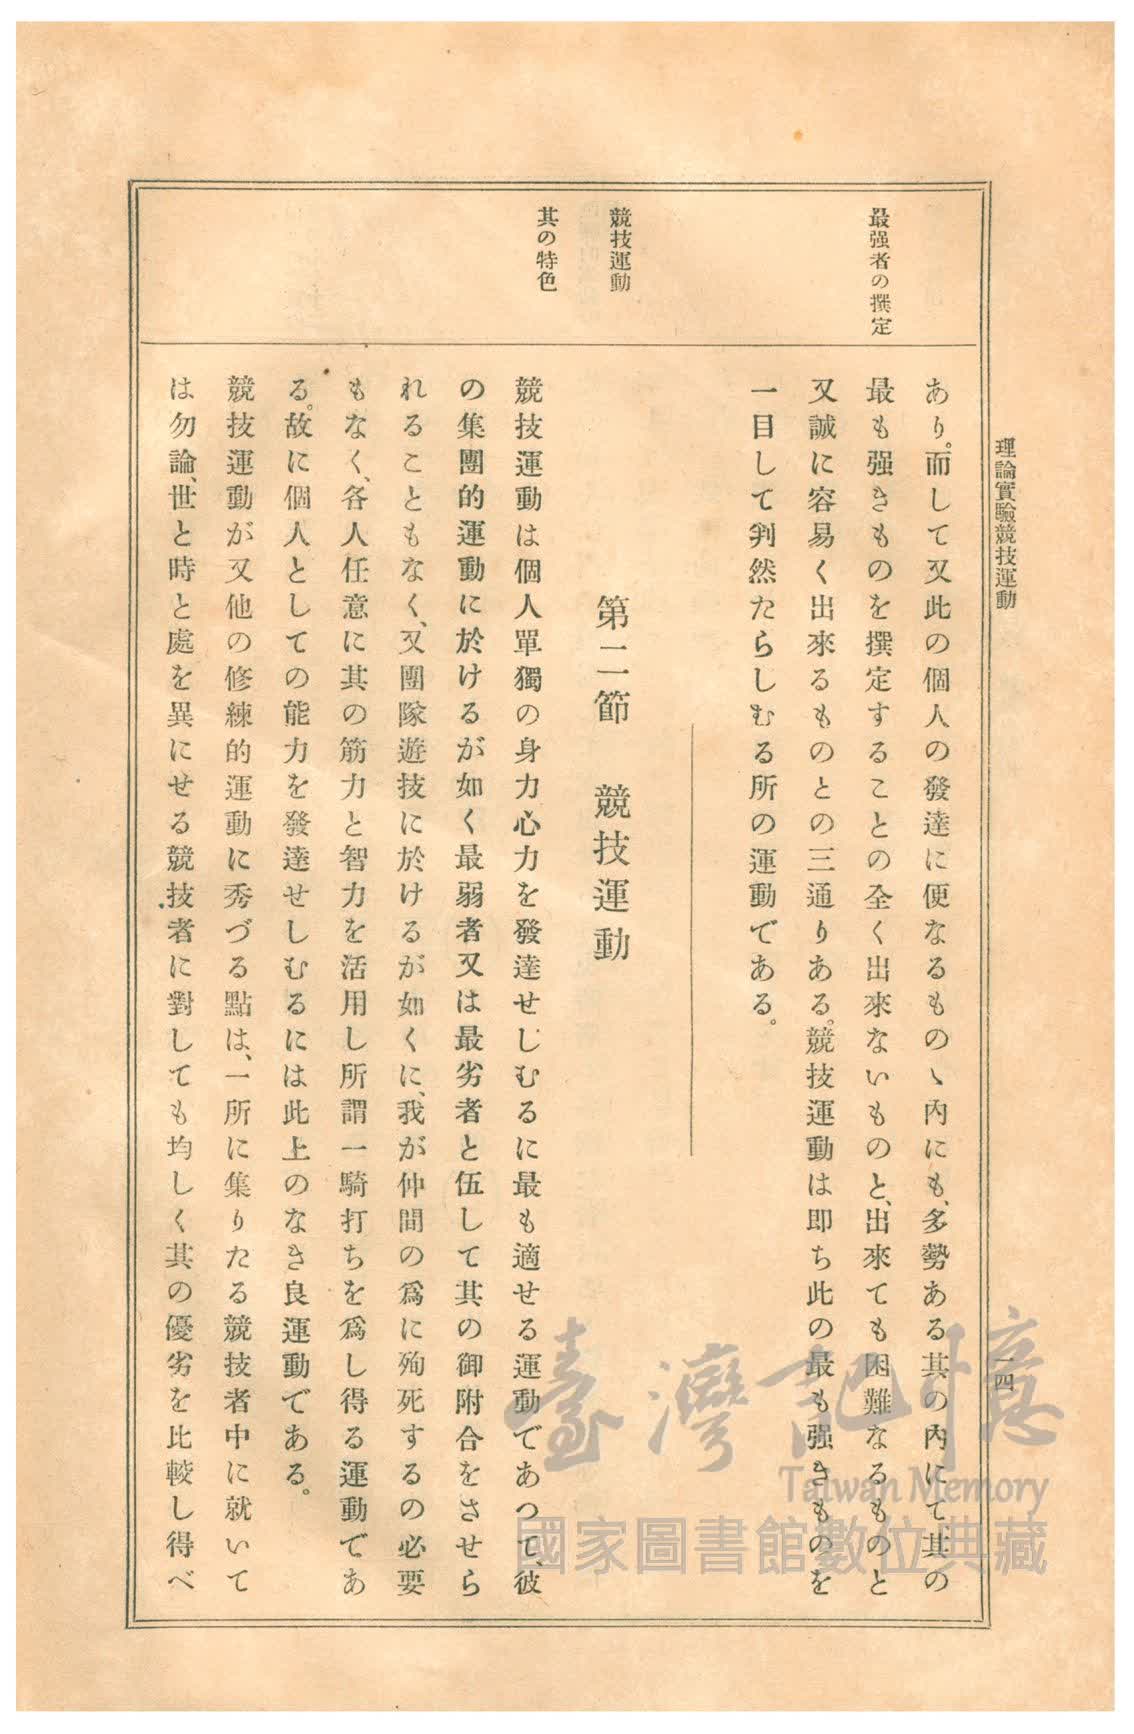 理論實驗競技運動
一四
最强者の撰定
競技運動
其の特色
あり。而して又此の個人の發達に便なるものゝ內にも、多勢ある其の內にて其の
最も强きものを撰定することの全く出來ないものと、出來ても困難なるものと
又誠に容易く出來るものとの三通りある。競技運動は卽ち此の最も强きものを
一目して判然たらしむる所の運動である。
第二節　競技運動
競技運動は個人單獨の身力心力を發達せしむるに最も適せる運動であつて、彼
の集團的運動に於けるが如く最弱者又は最劣者と伍して其の御附合をさせら
れることもなく、又團隊遊技に於けるが如くに、我が仲間の爲に殉死するの必要
もなく、各人任意に其の筋力と智力を活用し所謂一騎打ちを爲し得る運動であ
る。故に個人としての能力を發達せしむるには此上のなき良運動である。
競技運動が又他の修練的運動に秀づる點は、一所に集りたる競技者中に就いて
は勿論、世と時と處を異にせる競技者に對しても均しく其の優劣を比較し得べ
臺灣記憶
Taiwan Memory
國家圖書館數位典藏